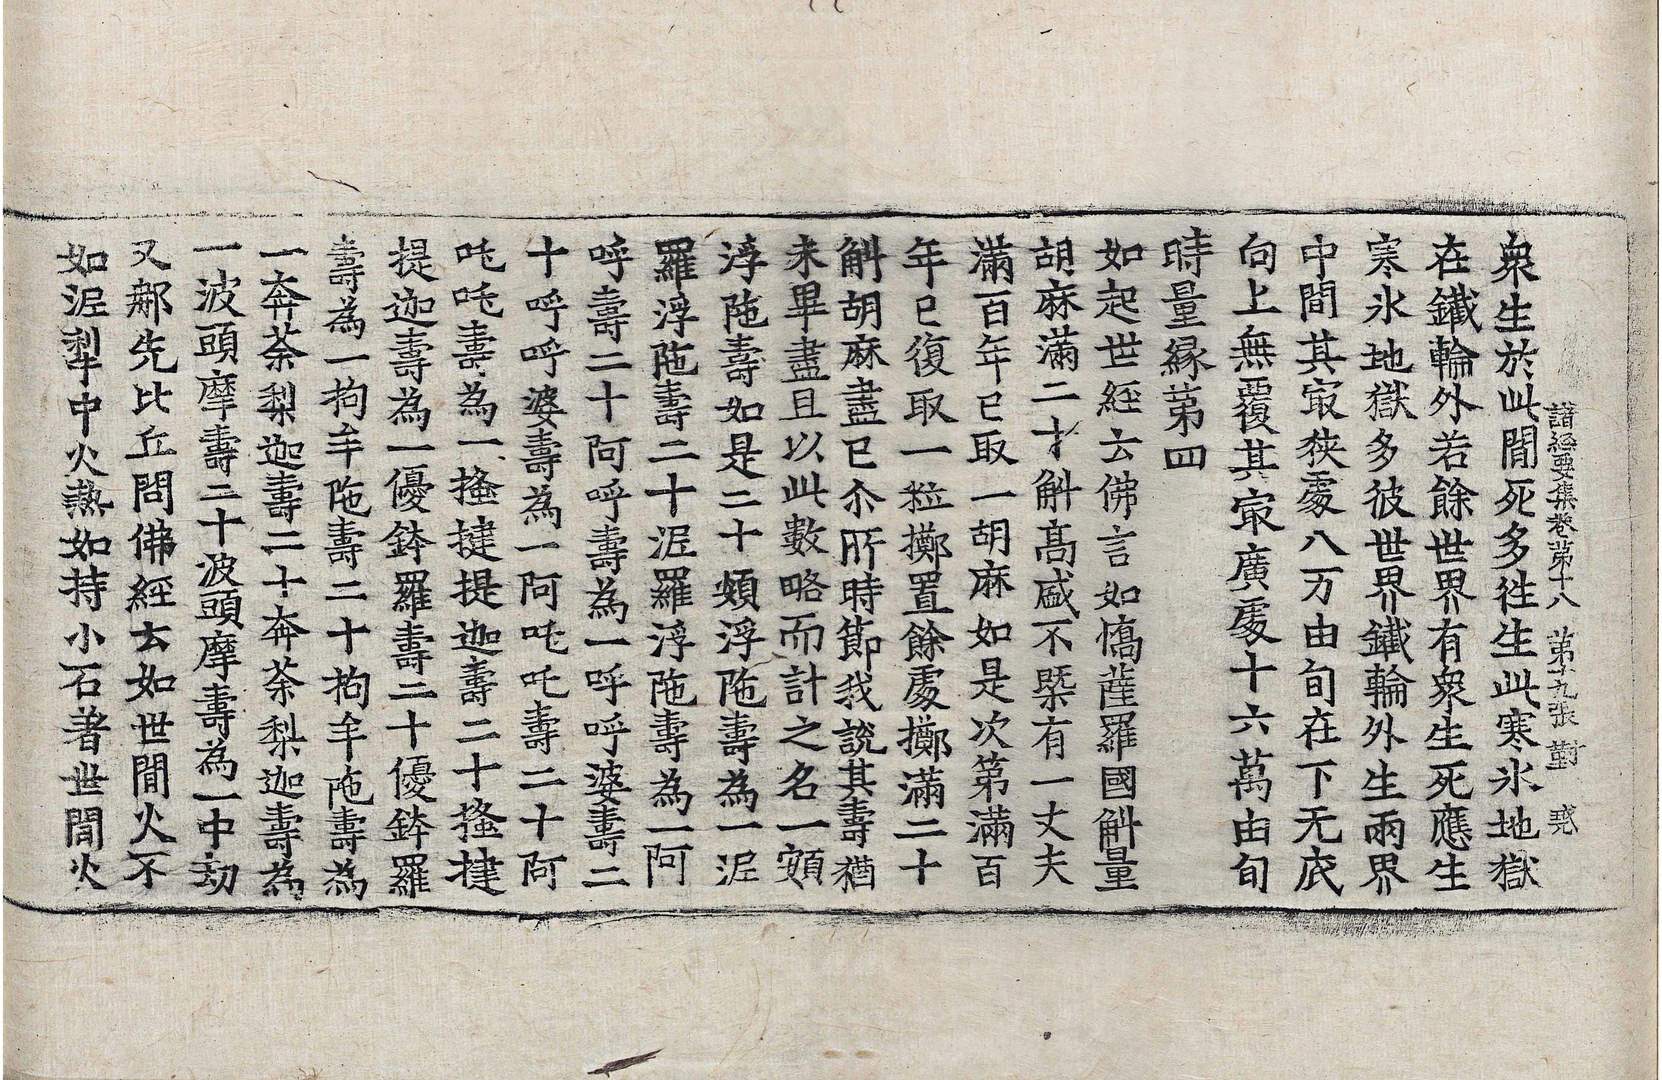 諸經要集卷第十八 第十九張 對
衆生於此間死多往生此寒氷地獄
在鐵輪外若餘世界有衆生死應生
寒氷地獄多彼世界鐵輪外生兩界
中間其㝡狹處八万由旬在下无底
向上無覆其㝡廣處十六萬由旬
時量緣第四
如起世經云佛言如憍薩羅國斛量
胡麻滿二十斛高盛不槩有一丈夫
滿百年已取一胡麻如是次第滿百
年已復取一粒擲置餘處擲滿二十
斛胡麻盡已尒所時節我說其壽猶
未畢盡且以此數略而計之名一頞
浮陁壽如是二十頞浮陁壽為一泥
羅浮陁壽二十泥羅浮陁壽為一阿
呼壽二十阿呼壽為一呼呼婆壽二
十呼呼婆壽為一阿吒吒壽二十阿
吒吒壽為一搔揵提迦壽二十搔揵
提迦壽為一優鉢羅壽二十優鉢羅
壽為一拘牟陁壽二十拘牟陁壽為
一奔荼梨迦壽二十奔荼梨迦壽為
一波頭摩壽二十波頭摩壽為一中劫
又那先比丘問佛經云如世間火不
如泥犁中火熱如持小石著世間火